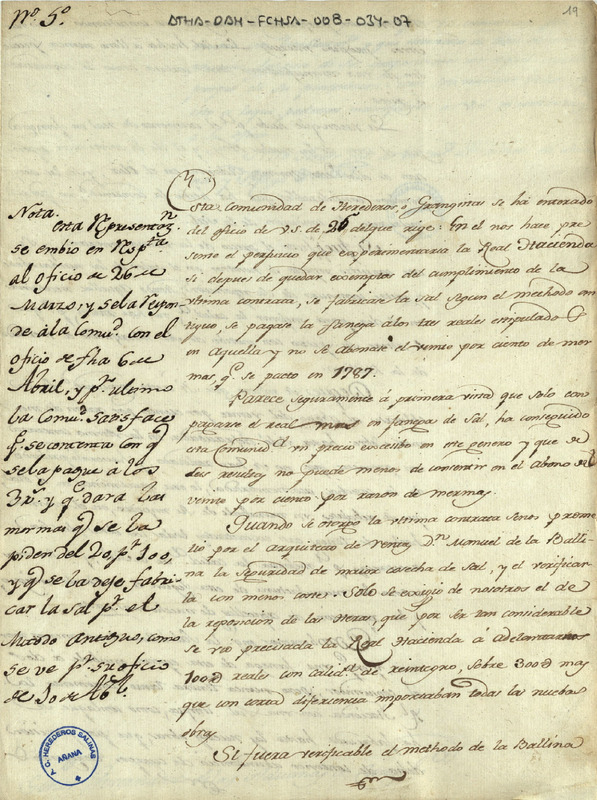 Nº 5º
ATHA-DAH-FCHSA-008-034-07
19
Nota.
Esta Rpresentonn
se embio en Rspta
al oficio de 26 de
Marzo, y se la Respon-
de à la Comud con el
oficio de fha 6 de
Abril, y pr ultimo
la Comud satisface
qe se contenta con qe
se la pague á los
3 rs y qe dara las
mermas qe se la
piden del 20 pr 100,
y qe se la deje fabri-
car la sal pr el
Metodo antiguo, como
se ve pr su oficio
de 10 de Abl
Esta Comunidad de Herederos, ò Grangistas se há enterado
del oficio de V.S. de 26 del que rige: En el nos hace pre-
sente el perjuicio que experimentaria la Real Hacienda
si depues de quedar exemptos del cumplimiento de la
vltima contrata, se fabricase la Sal segun el methodo an-
tiguo, se pagase la fanega álos tres reales estipulado
en Aquella y no se Abonase el veinte por ciento de mer-
mas qe se pacto en 1787.
Parece seguramente á primera vista que solo con
pagarse el real mas en fanega de Sal, ha conseguido
esta Comunidd un precio excesibo en este genero y que de
sus resultas no puede menos de consentir en el Abono del
veinte por ciento por razon de mermas.
Quando se otorgo la vltima contrata senos prome-
tio por el arquitecto de Rentas Dn Manuel de la Balli-
na la seguridad de maior cosecha de Sal, y el verificar-
la con menos coste. Solo se exigio de nosotros el de
la reposicion de las Heras, que por ser tan considerable
se vio precisada la Real Hacienda á Adelantarnos
100 D reales con calidd de reintegro, sobre 300 D mas
que con corta diferiencia importaban todas las nuebas
obras.
Si fuera verificable el methodo de la Ballina
A.C. HEREDEROS SALINAS
AÑANA